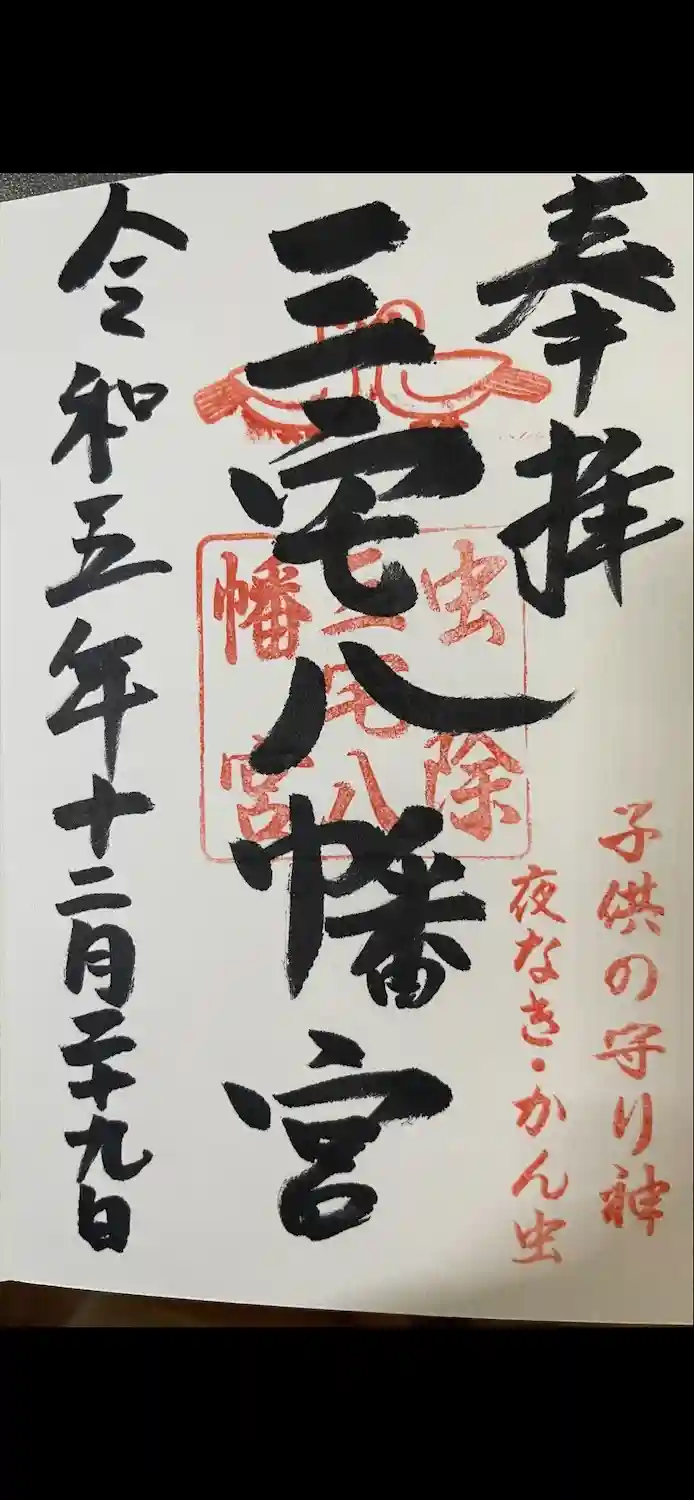 奉拝
子供の守り神
夜なき・かん虫
三宅八幡宮
虫除
三宅八
幡宮
令和五年十二月二十九日